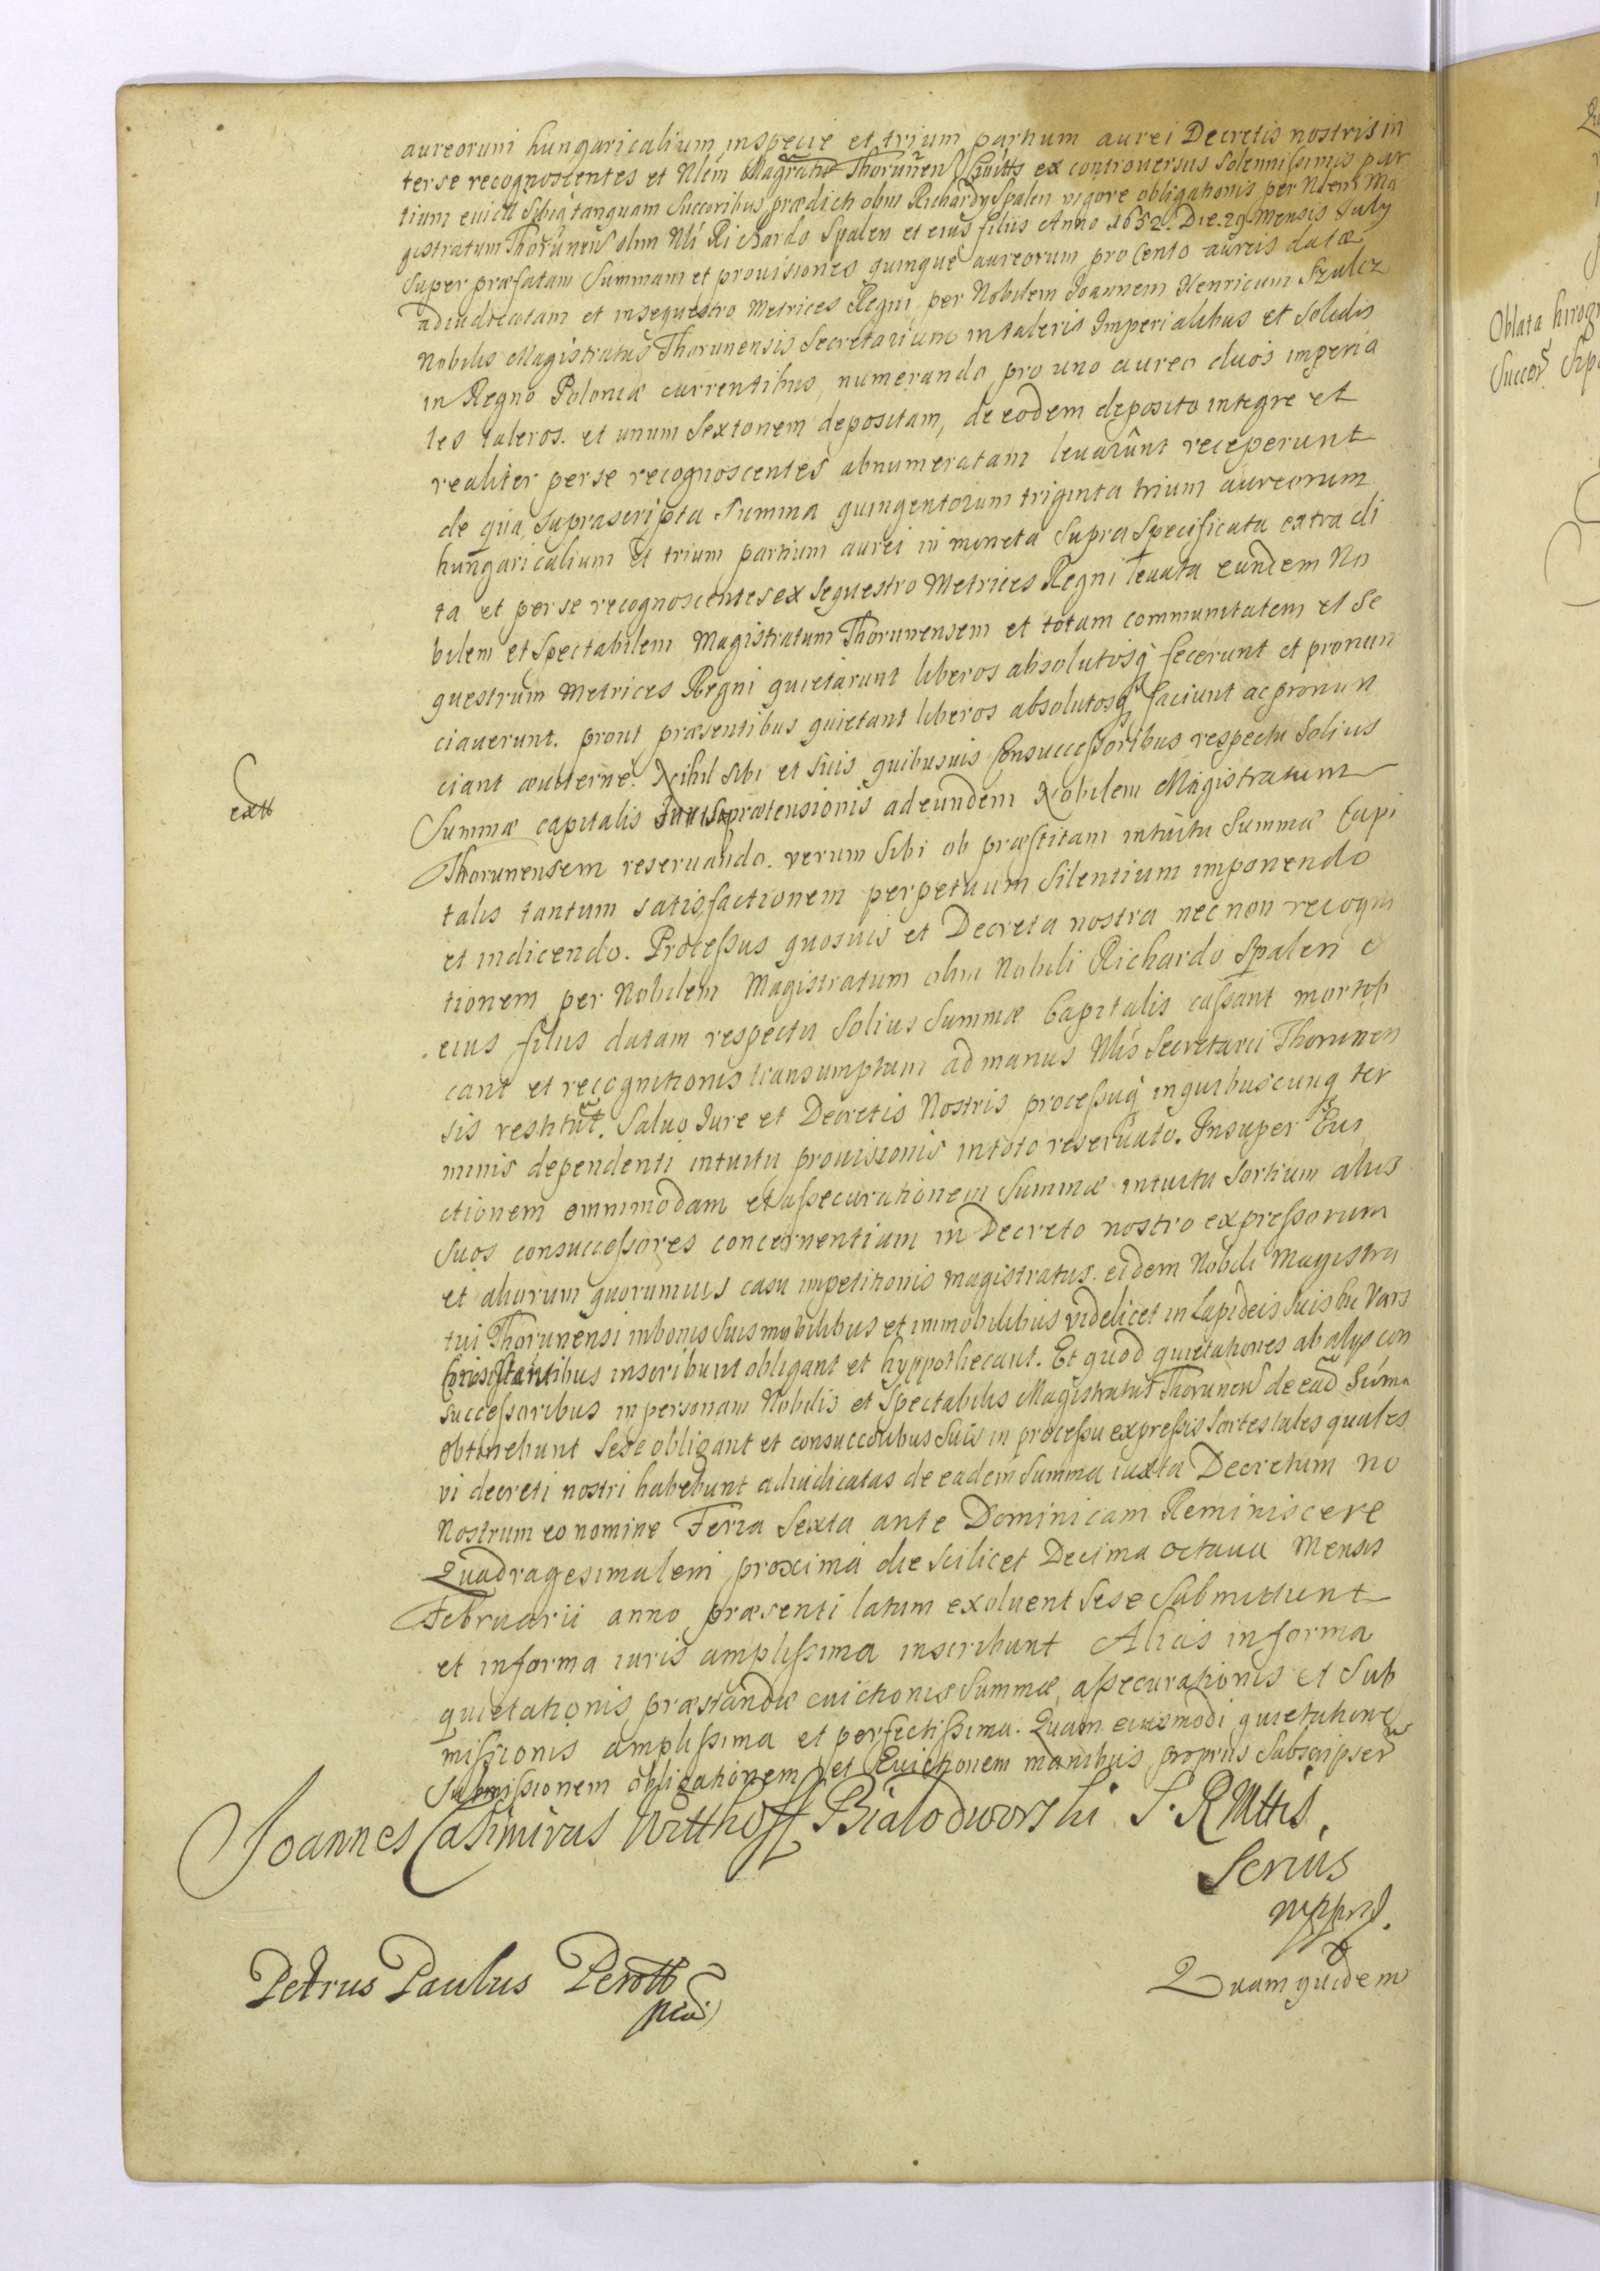 aureorum hungaricalium in specie et trium partium aurei Decretis nostris in
terse recognoscentes et Nlem Magratũ Thorunen ex controversus solennissimis par
tium evicta sibiq tanquam succoribus prædicti olim Richardy Spalen vigore obligationis per Nlem Ma
gistratum Thorunen olim Nli Richardo Spalen et eius filiis Anno 1652. Die. 29 Mensis July
super præfatam summam et provisiones quinque aureorum pro cento aureis datæ
adiudicatam et in sequestro Metrices Regni per Nobilem Joannem Henricum Szulcz
Nobilis Magistratus Thorunensis Secretarium in taleris Imperialibus et solidis
in Regno Poloniæ currentibus, numerando pro uno aureo duos imperia
les taleros. et unum sextonem depositam, de eodem deposito integre et
realiter per se recognoscentes abnumeratam levarunt receperunt
de qua suprascripta summa quingentorum triginta trium aureorum
hungaricalium et trium partium aurei in moneta supra specificata extradi
ta et per se recognoscentes ex sequestro Metrices Regni levata eundem No
bilem et Spectabilem Magistratum Thorunensem et totam communitatem et se
questrum Metrices Regni quietarunt liberos absolutosq fecerunt et pronun
ciaverunt. prout præsentibus quietant liberos absolutosq faciunt ac pronun
ciant æviterne. Nihil sibi et suis quibusvis Consuccessoribus respectu solius
extt
Summæ capitalis Juris prætensionis ad eundem Nobilem Magistratum
Thorunensem reservando. verum sibi ob præstitam intuitu summæ Capi
talis tantum satisfactionem perpetuum silentium imponendo
et indicendo. Processus quosvis et Decreta nostra nec non recogni
tionem per Nobilem Magistratum olim Nobili Richardo Spalen e
eius filiis datam respectu solius summæ Capitalis cassant mortifi
cant et recognitionis transumptum ad manus Nlis Secretarii Thorunen
sis restitũt. Salvo Jure et Decretis Nostris processuq in quibuscunq ter
minis dependenti intuitu provisionis in toto reservato. Insuper Evi
ctionem omnimodam et assecurationem summæ intuitu sortium alios
suos consuccessores concernentium in Decreto nostro expressorum
et aliorum quorumvis casu impetitionis magistratus. eidem Nobili Magistra
tui Thorunensi in bonis suis mobilibus et immobilibus videlicet in Lapideis suis hic Vars
consistentibus inscribunt obligant et hyppothecant. Et quod quietationes ab alys con
successoribus in personam Nobilis et Spectabilis Magistratus Thorunen de ead Suma
obtinebunt sese obligant et consuccoribus suis in processu expressis sortes tales quales
vi decreti nostri habebunt adiudicatas de eadem summa iuxta Decretum no
Nostrum eo nomine Feria sexta ante Dominicam Reminiscere
Quadragesimalem proxima die scilicet Decima octava Mensis
Februarii anno præsenti latum exolvent sese submittunt
et in forma iuris amplissima inscribunt Alias in forma
quietationis præstandæ evictionis summæ, assecurationis et sub
missionis amplissima et perfectissima. Quam eiusmodi quietatione
submissionem obligationem et Evictionem manibus propriis subscripser
Joannes Casimirus Witthoff Bialodworski S. R Mttis.
Secrius
mppria.
Petrus Paulus Perotti
mp
Quam quidem
Oblata
Succor